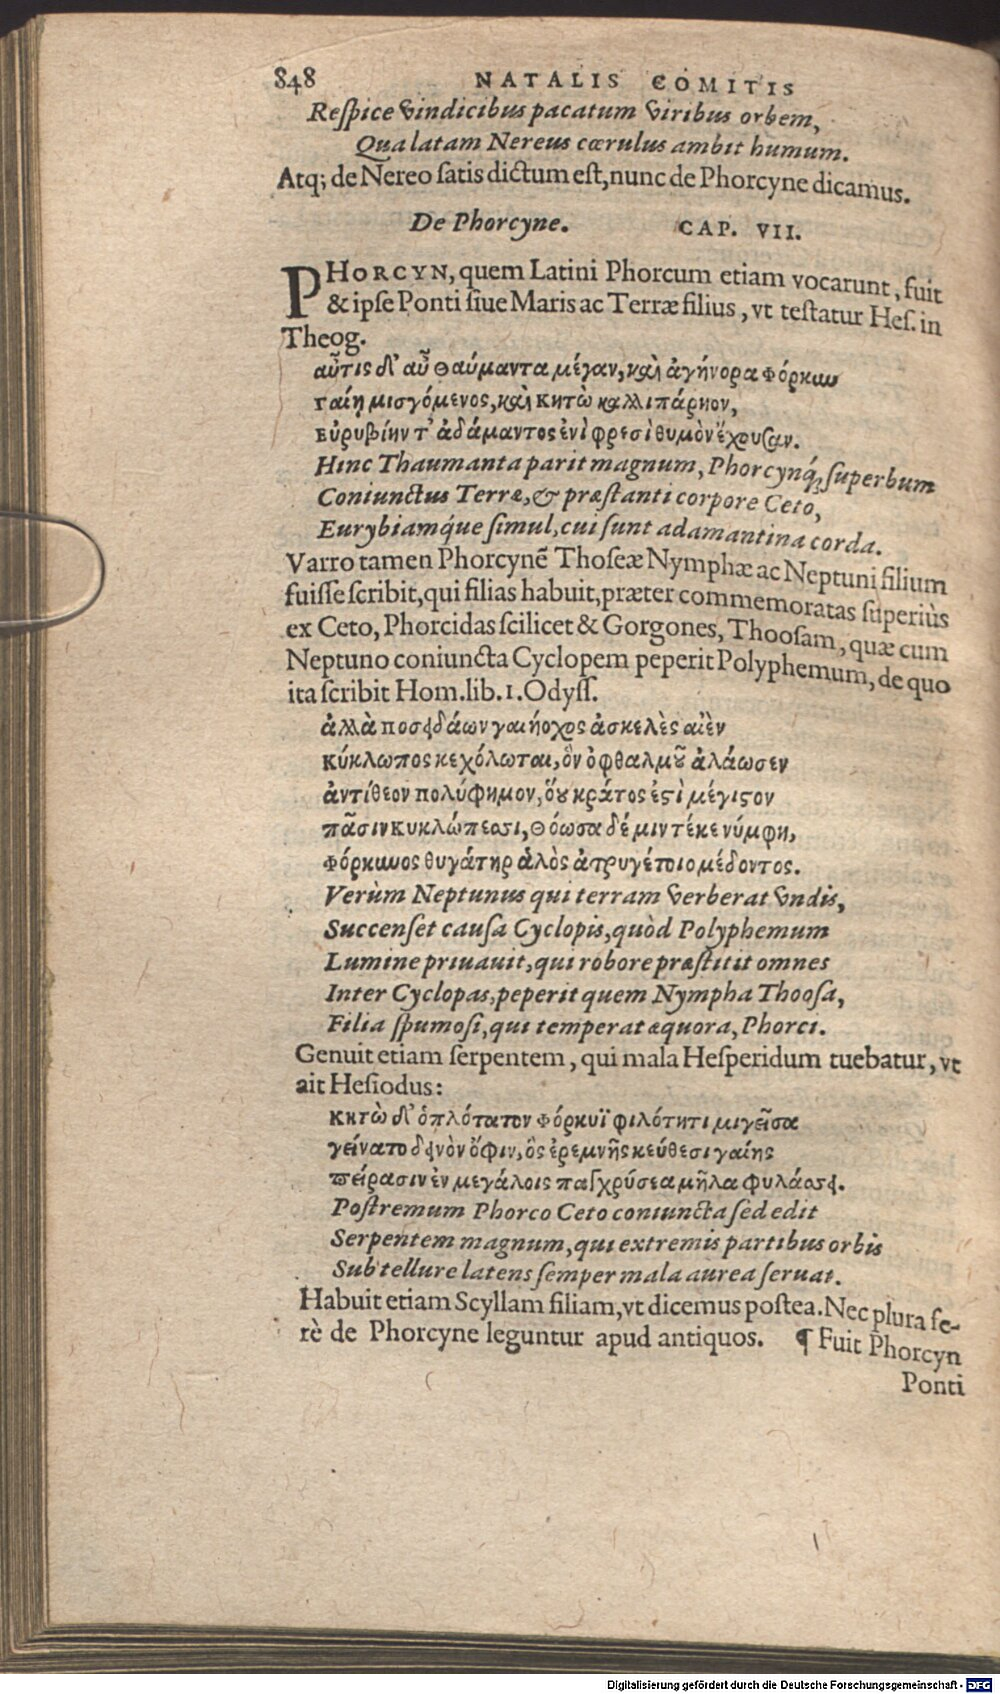 848 NATALIS COMITIS
Respice vindicibus pacatum viribus orbem,
Qua latam Nereus cœrulus ambit humum.
Atq; de Nereo satis dictum est, nunc de Phorcyne dicamus.
De Phorcyne. CAP. VII.
PHORCYN, quem Latini Phorcum etiam vocarunt, fuit
& ipse Ponti siue Maris ac Terræ filius, vt testatur Hes. in
Theog.
αὖτις δ' αὖ Θαύμαντα μέγαν, καὶ ἀγήνορα Φόρκυν
Γαίῃ μισγόμενος, καὶ Κητὼ καλλιπάρηον,
Εὐρυβίην τ' ἀδάμαντος ἐνὶ φρεσὶ θυμὸν ἔχουσαν.
Hinc Thaumanta parit magnum, Phorcynq́; superbum
Coniunctus Terræ, & præstanti corpore Ceto,
Eurybiamq́ue simul, cui sunt adamantina corda.
Varro tamen Phorcynẽ Thoseæ Nymphæ ac Neptuni filium
fuisse scribit, qui filias habuit, præter commemoratas superiùs
ex Ceto, Phorcidas scilicet & Gorgones, Thoosam, quæ cum
Neptuno coniuncta Cyclopem peperit Polyphemum, de quo
ita scribit Hom. lib. 1. Odyss.
ἀλλὰ ποσειδάων γαιήοχος ἀσκελὲς αἰὲν
Κύκλωπος κεχόλωται, ὃν ὀφθαλμοῦ ἀλάωσεν
ἀντίθεον πολύφημον, ὅου κράτος ἐστὶ μέγιστον
πᾶσιν Κυκλώπεσσι, Θόωσα δέ μιν τέκε νύμφη,
Φόρκυνος θυγάτηρ ἁλὸς ἀτρυγέτοιο μέδοντος.
Verùm Neptunus qui terram verberat vndis,
Succenset causa Cyclopis, quòd Polyphemum
Lumine priuauit, qui robore præstitit omnes
Inter Cyclopas, peperit quem Nympha Thoosa,
Filia spumosi, qui temperat æquora, Phorci.
Genuit etiam serpentem, qui mala Hesperidum tuebatur, vt
ait Hesiodus:
Κητὼ δ' ὁπλότατον Φόρκυϊ φιλότητι μιγεῖσα
γείνατο δεινὸν ὄφιν, ὃς ἐρεμνῆς κεύθεσι γαίης
πείρασιν ἐν μεγάλοις παγχρύσεα μῆλα φυλάσσει.
Postremum Phorco Ceto coniuncta sed edit
Serpentem magnum, qui extremis partibus orbis
Sub tellure latens semper mala aurea seruat.
Habuit etiam Scyllam filiam, vt dicemus postea. Nec plura fe-
rè de Phorcyne leguntur apud antiquos. ¶ Fuit Phorcyn
Ponti
Digitalisierung gefördert durch die Deutsche Forschungsgemeinschaft - DFG